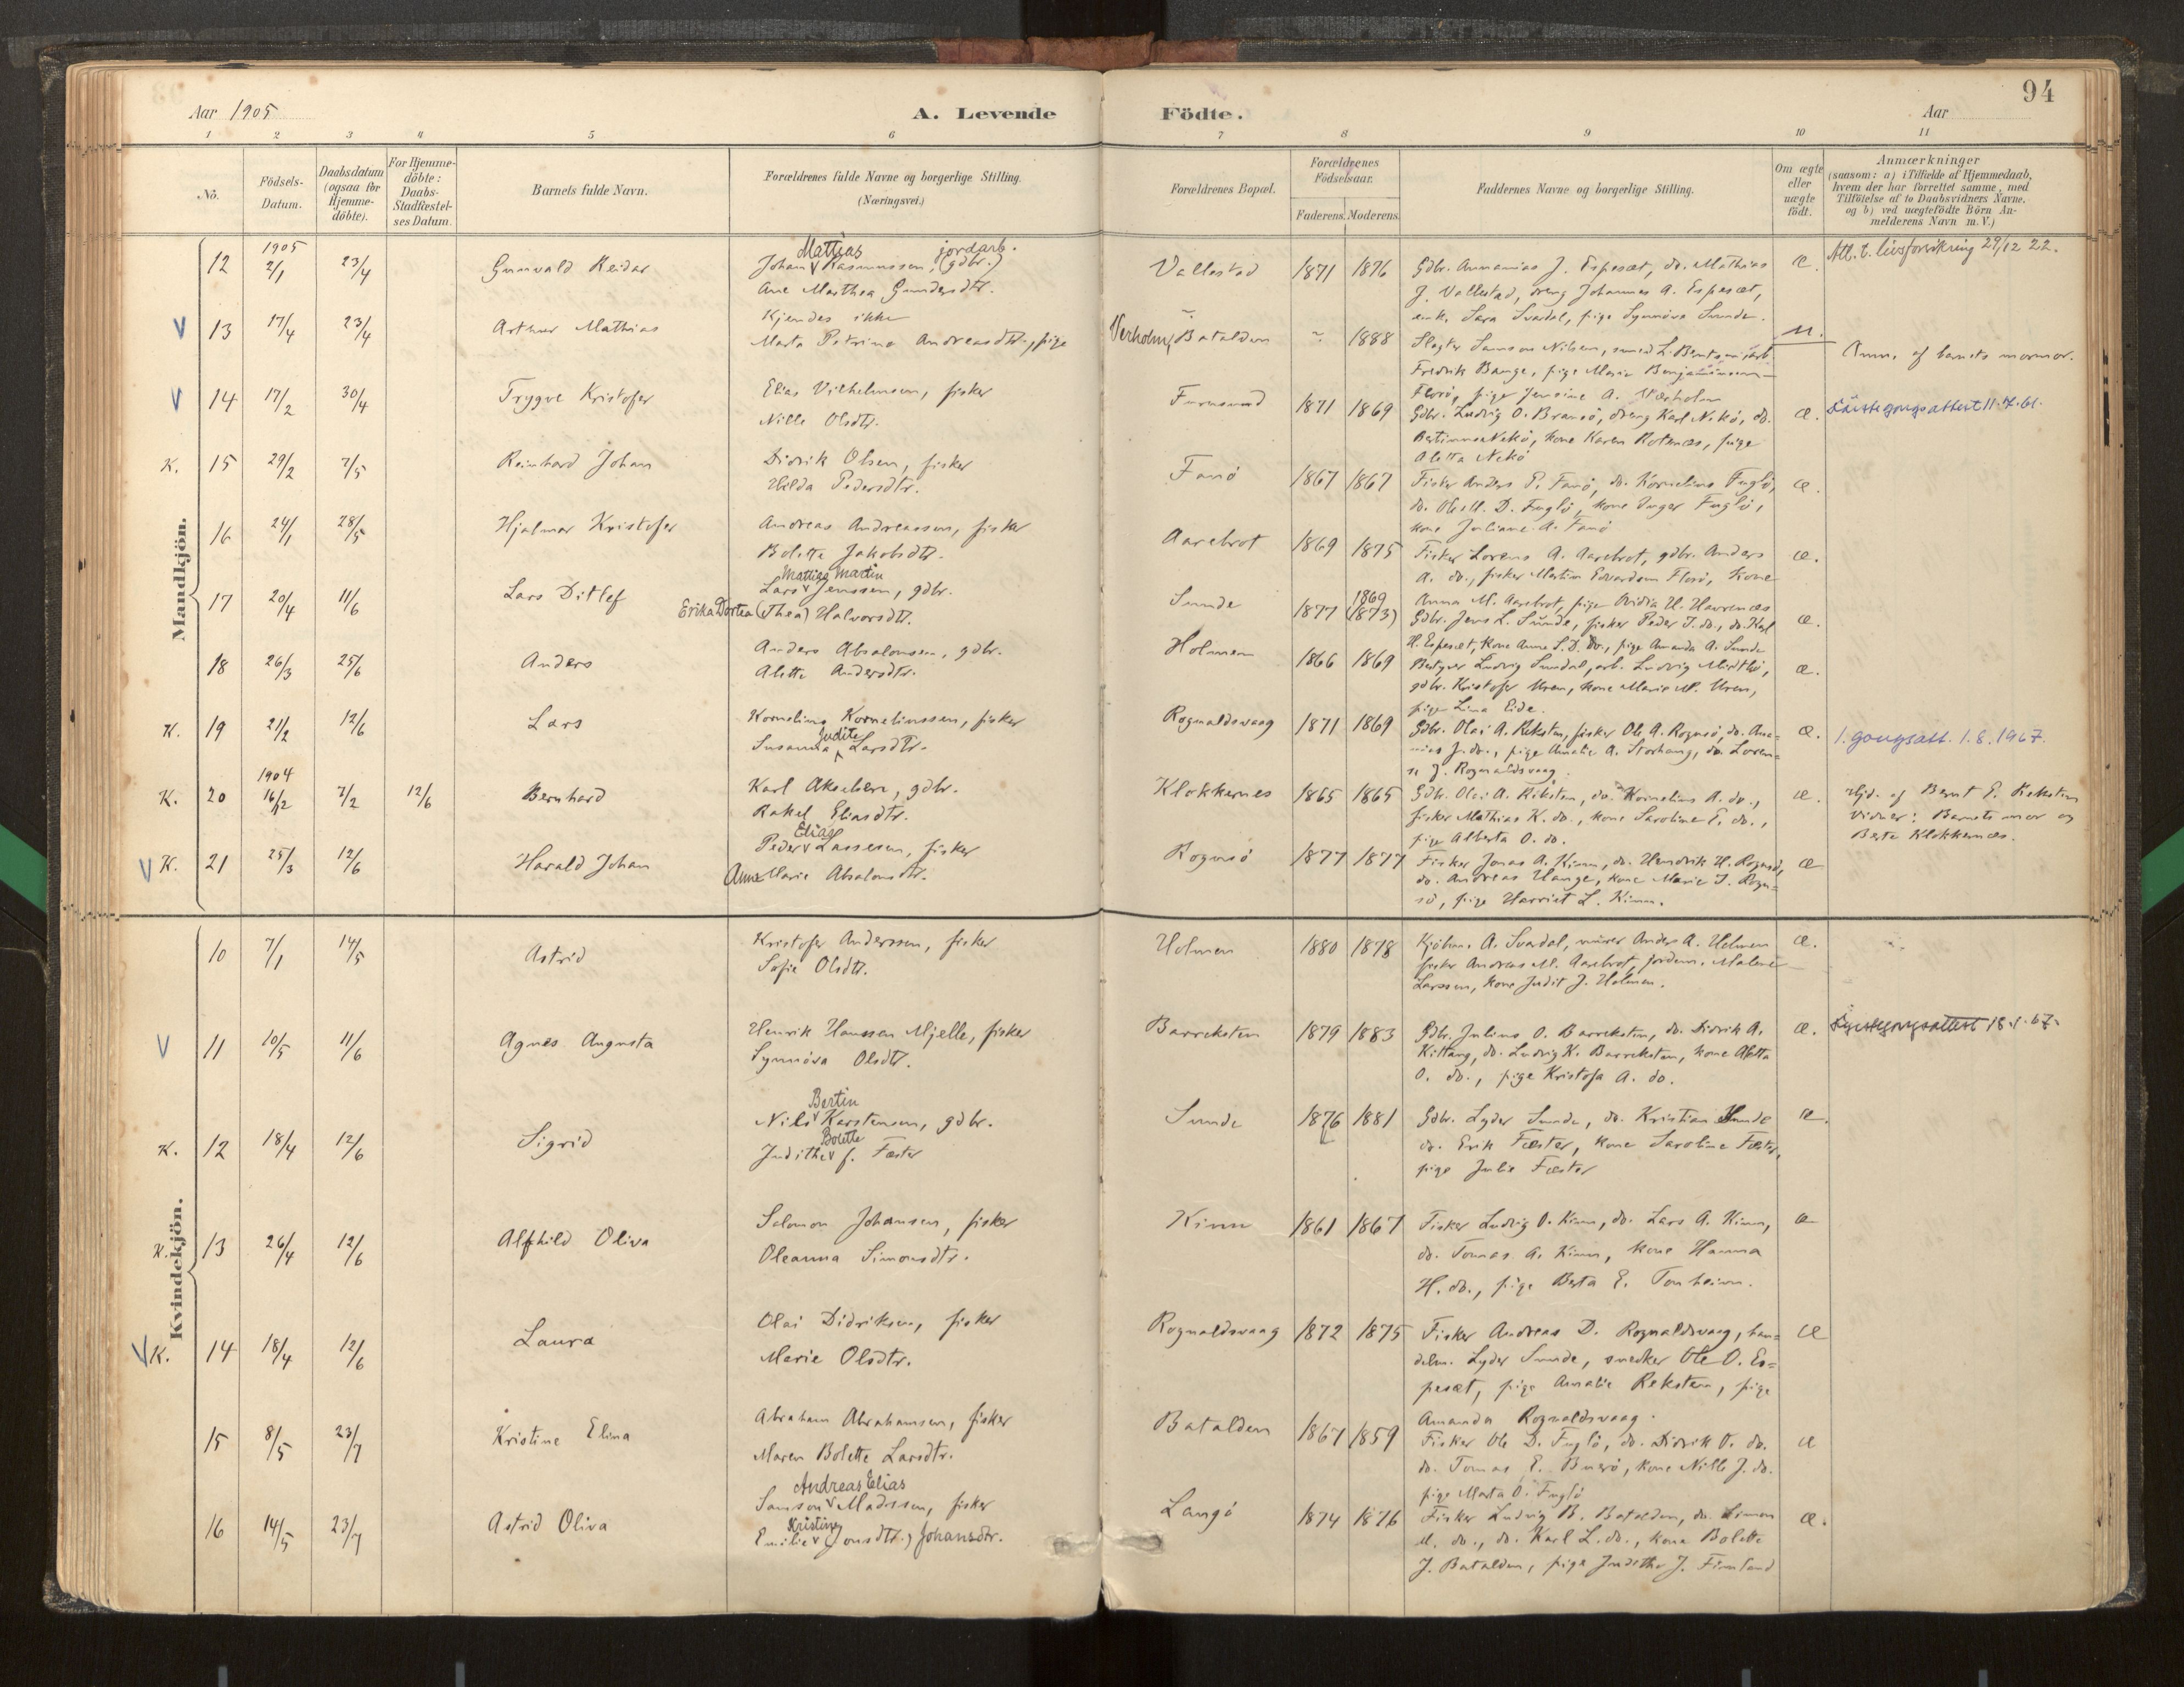 94
Aar 1905
A. Levende Födte.
Aar
1 2 3 4 5 6 7 8 9 10 11
No.
Födsels-Datum.
Daabsdatum (ogsaa for Hjemme-döbte).
For Hjemme-döbte: Daabs-Stadfæstel-ses Datum.
Barnets fulde Navn.
Forældrenes fulde Navne og borgerlige Stilling.
(Næringsvei.)
Forældrenes Bopæl.
Forældrenes Födselsaar.
Faderens. Moderens.
Faddernes Navne og borgerlige Stilling.
Om ægte eller uægte födt.
Anmærkninger
(saasom: a) i Tilfælde af Hjemmedaab,
hvem der har forrettet samme, med
Tilföielse af to Daabsvidners Navne,
og b) ved uægtefödte Börn An-
melderens Navn m. V.)
Mandkjön.
12 1905 2/1 23/4 Gunvald Reidar
Mattias jordarb.
Johan Rasmussen, (gdbr.)
Ane Marthea Gundersdtr.
Vallestad 1871 1876
Gdbr. Annanias J. Espeset, do. Mathias
J. Vallestad, dreng Johannes A. Espeset,
enk. Sara Svardal, pige Synnöva Sunde.
æ.
Att. t. livsforsikring 29/12 22.
V 13 17/4 23/4 Arthur Mathias
Kjendes ikke
Marta Petrine Andreasdtr., pige
Verholm, Batalden ~ 1888
Slagter Samson Nilsen, smed L. Bentsen, arb.
Fredrik Bauge, pige Marie Benjaminsen
Florö, pige Jensine A. Væsholm
u.
Anm. af barnets mormor.
V 14 17/2 30/4 Trygve Kristofer
Elias Vilhelmsen, fisker
Nille Olsdtr.
Furusund 1871 1869
Gdbr. Ludvig O. Bransö, dreng Karl Nekö, do.
Bertinus Nekö, kone Karen Rotenes, pige
Aletta Nekö
æ.
Førstegongsattest 11.7.61.
K. 15 29/2 7/5 Reinhard Johan
Didrik Olsen, fisker
Hilda Pedersdtr.
Fanö 1867 1867
Fisker Anders P. Fanö, do. Kornelius Fuglö,
do. Ole M. D. Fuglö, kone Inger Fuglö,
kone Juliane A. Fanö
æ.
16 24/1 28/5 Hjalmar Kristofer
Andreas Andreassen, fisker
Bolette Jakobsdtr.
Aarebrot 1869 1875
Fisker Lorens A. Aarebrot, gdbr. Anders
A. do., fisker Martin Edvardsen Florö, kone
Anna M. Aarebrot, pige Ovidia H. Havrenes
æ.
17 20/4 11/6 Lars Ditlef
Mattias Martin
Lars Jenssen, gdbr.
Erika Dortea (Thea) Halvorsdtr.
Sunde 1877 1869 (1873)
Gdbr. Jens L. Sunde, fisker Peder J. do., do. Karl
H. Espeset, kone Anne S. D. do., pige Amanda A. Sunde
æ.
18 26/3 25/6 Anders
Anders Absalonsen, gdbr.
Alette Andersdtr.
Holmen 1866 1869
Bestyrer Ludvig Sundal, arb. Ludvig Midtbö,
gdbr. Kristofer Uren, kone Marie M. Uren,
pige Lina Eide.
æ.
K. 19 21/2 12/6 Lars
Kornelius Korneliussen, fisker
Judite
Susanna Larsdtr.
Rognaldsvaag 1871 1869
Gdbr. Olai A. Reksten, fisker Ole A. Rognsö, do. Ana=
nias J. do., pige Amalie A. Storhaug, do. Loren=
se J. Rognaldsvaag.
æ.
1. gongsatt. 1.8.1967.
K. 20 1904 16/12 7/2 12/6 Bernhard
Karl Akselsen, gdbr.
Rakel Eliasdtr.
Klokkernes 1865 1865
Gdbr. Olai A. Reksten, do. Kornelius A. do.,
fisker Mathias K. do., kone Saroline E. do.,
pige Alberta O. do.
æ.
Hjd. af Bernt P. Reksten
Vidner: Barnets mor og
Berte Klokkernes.
V K. 21 25/3 12/6 Harald Johan
Elias
Peder Lassesen, fisker
Anne Marie Absalonsdtr.
Rognsö 1877 1877
Fisker Jonas A. Kinn, do. Hendrik H. Rognsö,
do. Andreas Hauge, kone Marie J. Rogn=
sö, pige Harriet L. Kinn.
æ
Kvindekjön.
10 7/1 14/5 Astrid
Kristofer Anderssen, fisker
Sofie Olsdtr.
Holmen 1880 1878
Kjöbm. A. Svardal, murer Anders A. Holmen
fisker Andreas M. Aarebrot, jordem. Malene
Larssen, kone Judit J. Holmen.
æ.
V 11 10/5 11/6 Agnes Augusta
Henrik Hanssen Mjelle, fisker
Synnöva Olsdtr.
Barreksten 1879 1883
Gdbr. Julius O. Barreksten, do. Didrik A.
Kittang, do. Ludvig K. Barreksten, kone Aletta
O. do., pige Kristofa A. do.
æ.
Førstegongsattest 18.1.67.
K. 12 18/4 12/6 Sigrid
Bertin
Nils Karstensen, gdbr.
Bolette
Judithe f. Fæster
Sunde 1876 1881
Gdbr. Lyder Sunde, do. Kristian Sunde
do. Erik Fæster, kone Saroline Fæster,
pige Julie Fæster
æ.
K. 13 26/4 12/6 Alfhild Oliva
Salomon Johansen, fisker
Oleanna Simonsdtr.
Kinn 1861 1867
Fisker Ludvig O. Kinn, do. Lars A. Kinn,
do. Tomas A. Kinn, kone Hanna
H. do., pige Berta E. Tonheim.
æ
V K. 14 18/4 12/6 Laura
Olai Didriksen, fisker
Marie Olsdtr.
Rognaldsvaag 1872 1875
Fisker Andreas D. Rognaldsvaag, han=
delm. Lyder Sunde, snedker Ole O. Es=
peset, pige Amalie Reksten, pige
Amanda Rognaldsvaag.
æ
15 8/5 23/7 Kristine Elina
Abraham Abrahamsen, fisker
Maren Bolette Larsdtr.
Batalden 1867 1859
Fisker Ole D. Fuglö, do. Didrik O. do.
do. Tomas E. Buerö, kone Nille J. do.
pige Marta O. Fuglö
æ
16 14/5 23/7 Astrid Oliva
Andreas Elias
Samson Madssen, fisker
Kristine
Emilie (Jonsdtr.) Johansdtr.
Langö 1874 1876
Fisker Ludvig B. Batalden, do. Simon
M. do., do. Karl L. do., kone Bolette
J. Batalden, pige Judithe J. Fimland
æ.